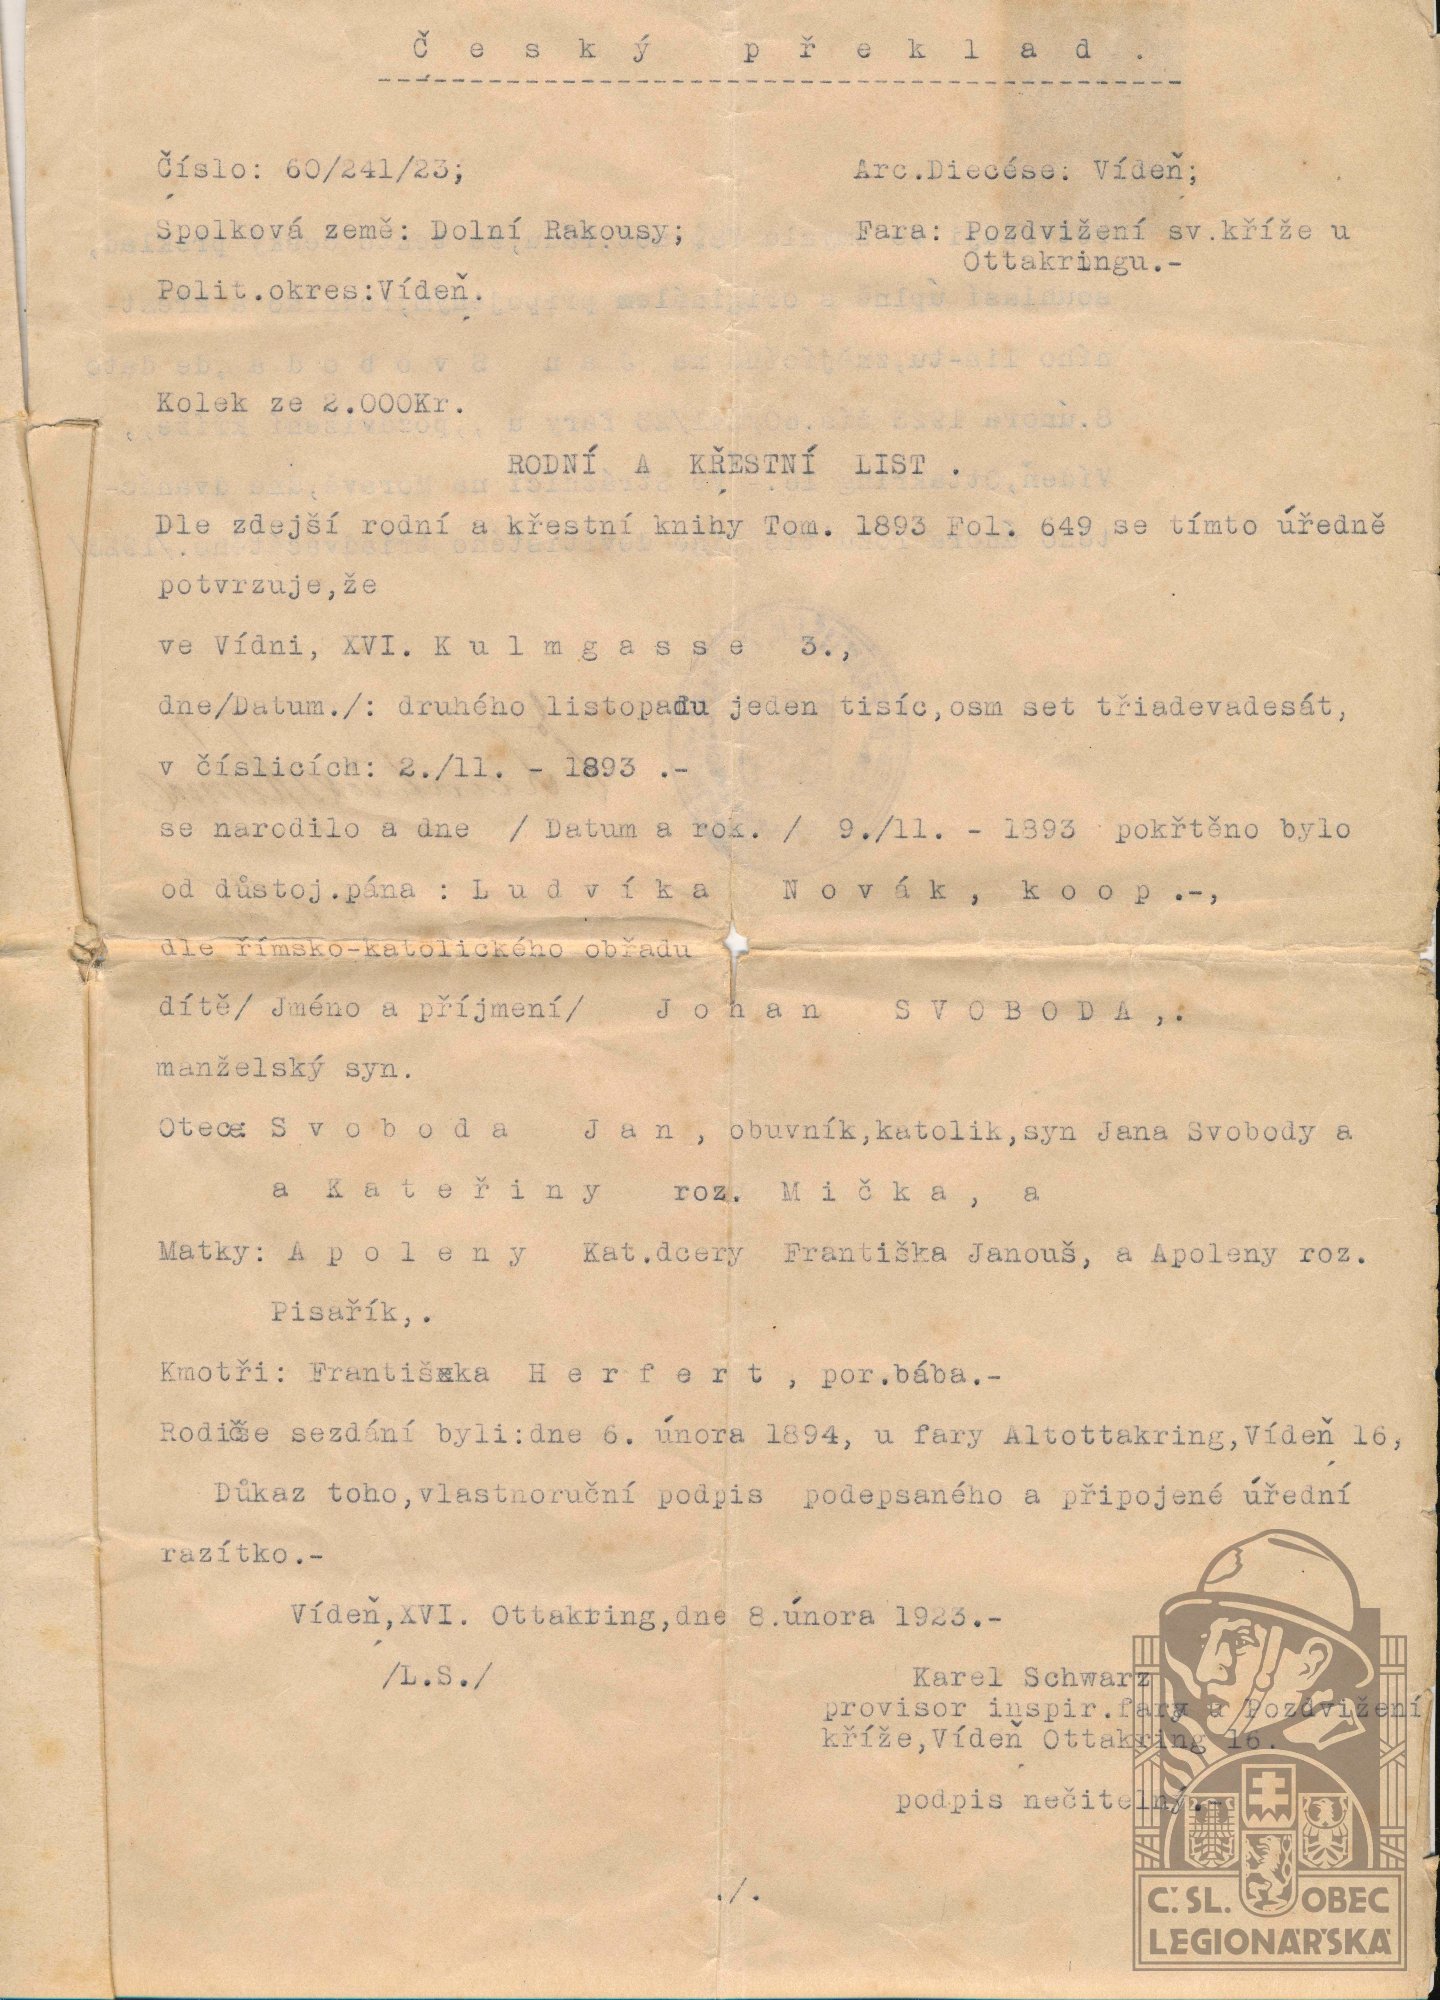 Český překlad.
Číslo: 60/241/23;
Arc.Diecése: Vídeň;
Spolková země: Dolní Rakousy;
Fara: Pozdvižení sv.kříže u
Ottakringu.-
Polit.okres:Vídeň.
Kolek ze 2.000Kr.
RODNÍ A KŘESTNÍ LIST .
Dle zdejší rodní a křestní knihy Tom. 1893 Fol. 649 se tímto úředně
potvrzuje,že
ve Vídni, XVI. Kulmgasse 3.,
dne/Datum./: druhého listopadu jeden tisíc,osm set třiadevadesát,
v číslicích: 2./11. - 1893 .-
se narodilo a dne / Datum a rok. / 9./11. - 1893 pokřtěno bylo
od důstoj.pána : Ludvíka Novák, koop.-,
dle římsko-katolického obřadu
dítě/ Jméno a příjmení/ Johan SVOBODA,.
manželský syn.
Otec: Svoboda Jan, obuvník,katolik,syn Jana Svobody a
a Kateřiny roz. Mička, a
Matky: Apoleny Kat.dcery Františka Janouš, a Apoleny roz.
Pisařík,.
Kmotři: Františka Herfert, por.bába.-
Rodiče sezdání byli:dne 6. února 1894, u fary Altottakring,Vídeň 16,
Důkaz toho,vlastnoruční podpis podepsaného a připojené úřední
razítko.-
Vídeň,XVI. Ottakring,dne 8.února 1923.-
/L.S./
Karel Schwarz
provisor inspir.fary u Pozdvižení
kříže,Vídeň Ottakring 16.
podpis nečitelný.-
./.
Č.SL. OBEC
LEGIONÁŘSKÁ